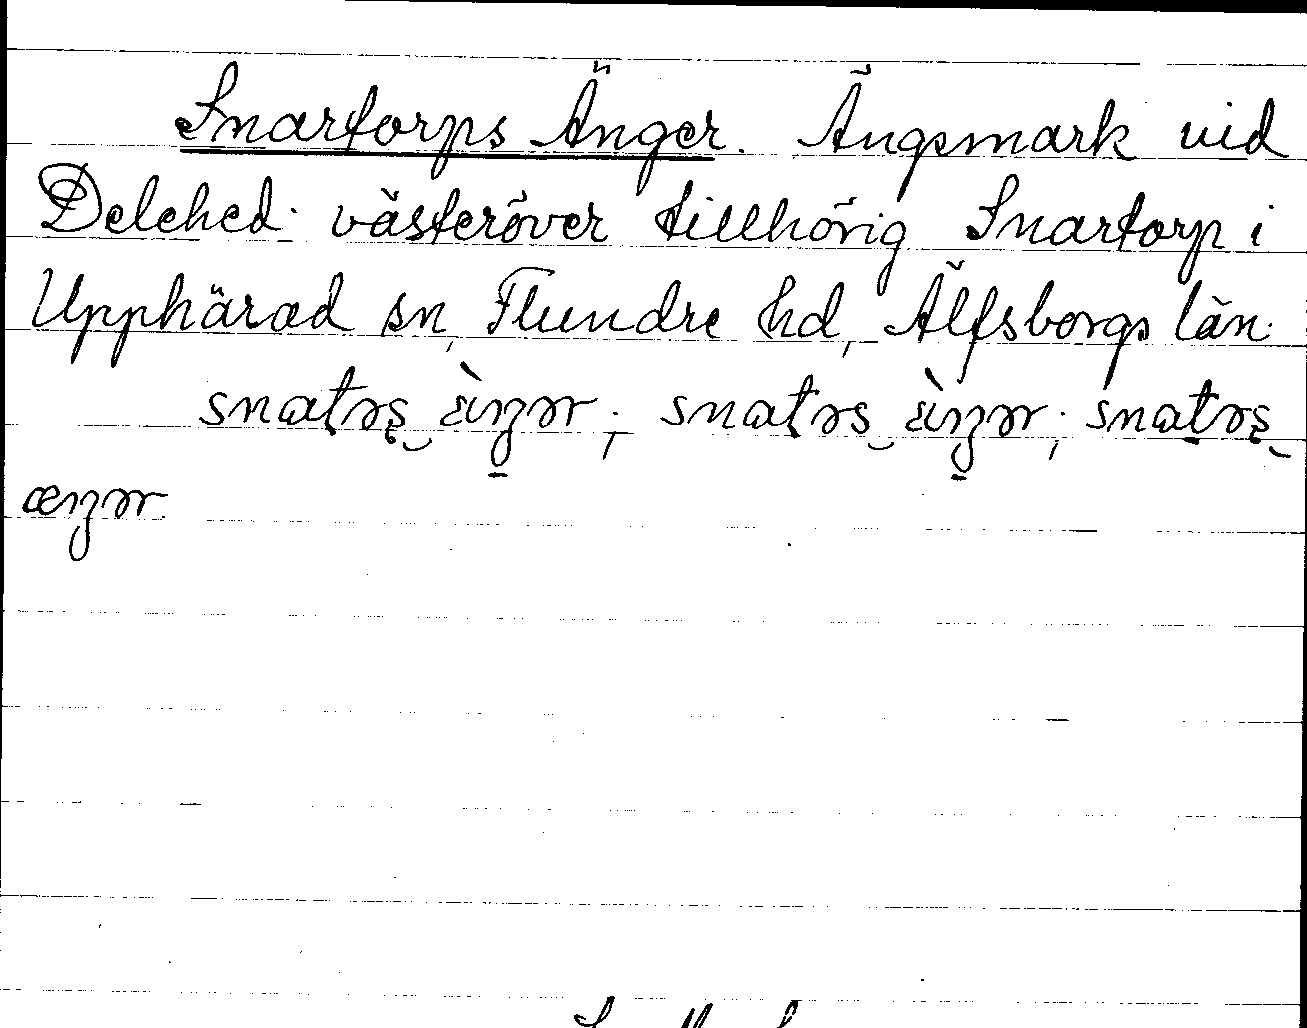 Snartorps Änger. Ängsmark vid
Delehed västeröver tillhörig Snartorp i
Upphärad sn, Flundre hd, Älfsborgs län.
snatərs ̮ æ̀ŋər; snatərs ̮ æ̀ŋər; snatərs ̮
æŋər.